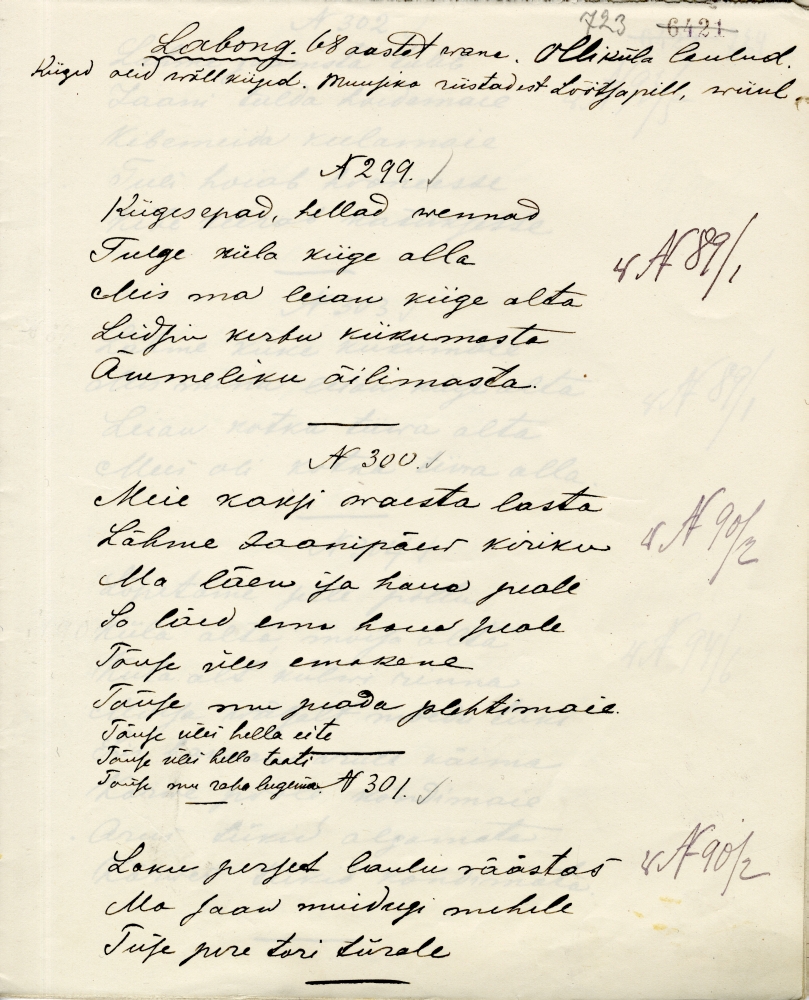 723 6421
Labong. 68 aastat vana. Olliküla laulud.
Kiiged olid võllkiiged. Muusika riistadest Lõõtsapill, wiiul.
N 299.
Kiigesepad, hellad wennad
Tulge küla kiige alla
Mis ma leian kiige alta
Leidsin kerbu kiikumasta
Ämmeliku äilimasta.
N 89/1
N 300.
Meie kaksi waesta lasta
Lähme Jaanipäew kiriku
Ma läen isa haua peale
Sa läed ema haua peale
Tõuse üles emakene
Tõuse mu peada plehtimaie.
Tõuse üles hella eite
Tõuse üles hella taati
Tõuse mu raha lugema.
N 90/2
N 301.
Laku perset laulu räästas
Ma saan muidugi mehele
Tuje pere tori türale
N 90/2